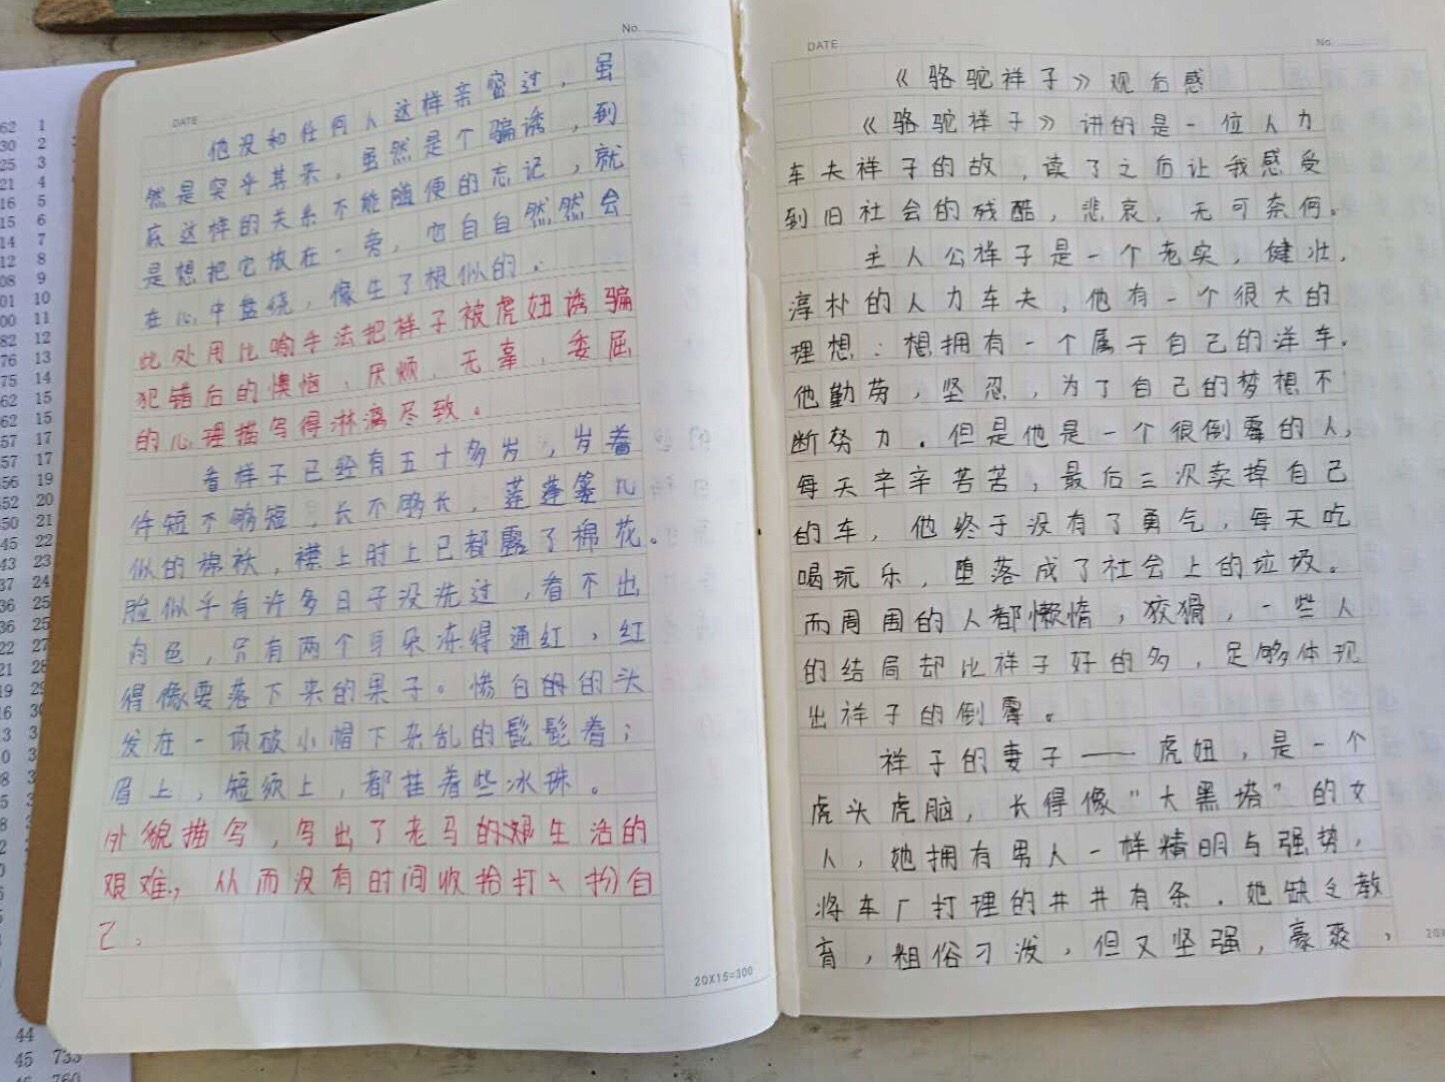 No.
DATE
他没和任何人这样亲密过，虽
然是突乎其来，虽然是个骗诱，到
底这样的关系不能随便的忘记，就
是想把它放在一旁，它自自然然会
在心中盘绕，像生了根似的。
此处用比喻手法把祥子被虎妞诱骗
犯错后的懊恼、厌烦、无辜、委屈
的心理描写得淋漓尽致。
看样子已经有五十多岁，岁着
件短不够短，长不够长，莲蓬篓儿
似的棉袄，襟上肘上已都露了棉花。
脸似乎有许多日子没洗过，看不出
肉色，只有两个耳朵冻得通红，红
得像要落下来的果子。惨白的的头
发在一顶破小帽下杂乱的髭髭着；
眉上，短须上，都挂着些冰珠。
外貌描写，写出了老马的艰生活的
艰难，从而没有时间收拾打扮自
己。
20X15=300
DATE
No.
《骆驼祥子》观后感
《骆驼祥子》讲的是一位人力
车夫祥子的故，读了之后让我感受
到旧社会的残酷，悲哀，无可奈何。
主人公祥子是一个老实，健壮，
淳朴的人力车夫，他有一个很大的
理想：想拥有一个属于自己的洋车。
他勤劳，坚忍，为了自己的梦想不
断努力。但是他是一个很倒霉的人，
每天辛辛苦苦，最后三次卖掉自己
的车，他终于没有了勇气，每天吃
喝玩乐，堕落成了社会上的垃圾。
而周围的人都懒惰，狡猾，一些人
的结局却比祥子好的多，足够体现
出祥子的倒霉。
祥子的妻子——虎妞，是一个
虎头虎脑，长得像“大黑塔”的女
人，她拥有男人一样精明与强势，
将车厂打理的井井有条。她缺乏教
育，粗俗刁泼，但又坚强，豪爽，
44
45 733
46 760